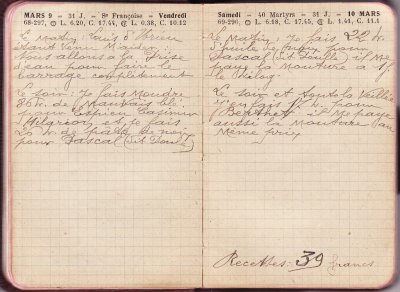 MARS 9 – 31 J. – Ste Françoise – Vendredi
68-297, L. 6.20, C. 17.45, L. 0.38, C. 10.12
Le matin, Guis
Saint Venu
Nous allons à la Prise
d'eau pour faire le
barrage complètement
Le soir : Je fais Moudre
86 K. de Mauvais blé
pour Cyprien Casimir
et Je fais
20 K. de pâte de noix
pour Pascal (dit Doule)
Samedi – 40 Martyrs – 31 J. – 10 MARS
69-296, L. 6.18, C. 17.46, L. 1.41, C. 11.1
Le Matin, Je fais 22 K.
d'huile de noix pour
Pascal (dit Doule) il Me
paye la Mouture a
le Kilog.
Le soir et toute la Veillée
j'en fais K. pour
Berthet il Me paye
aussi la Mouture au
Même prix
Recettes: 39 francs